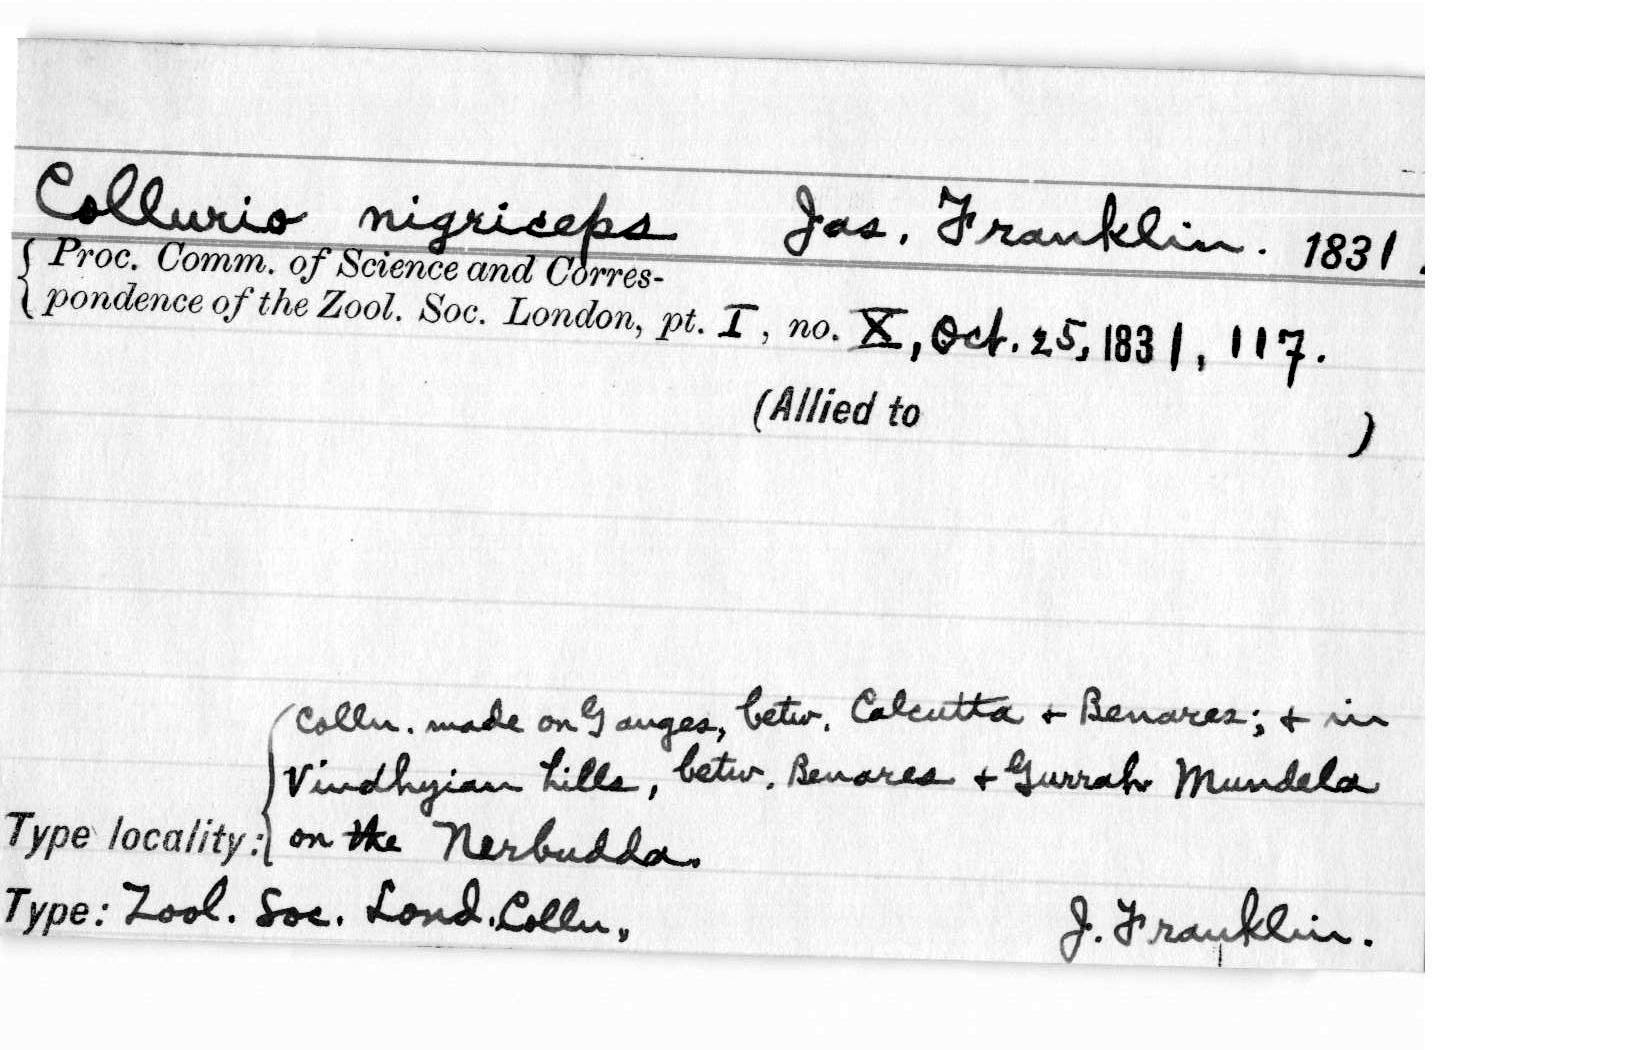 Collurio nigriceps Jas. Franklin. 1831.
Proc. Comm. of Science and Corres-
pondence of the Zool. Soc. London, pt. I, no. X, Oct. 25, 1831, 117.
(Allied to )
Colln. made on Ganges, betw. Calcutta + Benares; + in
Vindhyian hills, betw. Benares + Gurrah Mundela
Type locality: on the Nerbudda.
Type: Zool. Soc. Lond. Colln, J. Franklin.